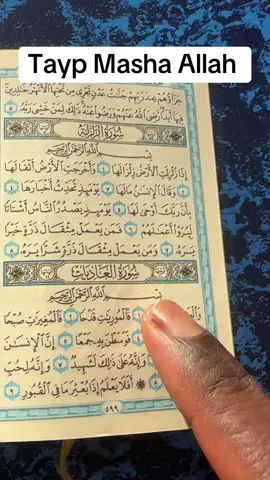 Tayp Masha Allah
جَزَاؤُهُمْ عِندَ رَبِّهِمْ جَنَّٰتُ عَدْنٍ تَجْرِي مِن تَحْتِهَا ٱلْأَنْهَٰرُ خَٰلِدِينَ
فِيهَآ أَبَدًا رَّضِيَ ٱللَّهُ عَنْهُمْ وَرَضُوا۟ عَنْهُ ذَٰلِكَ لِمَنْ خَشِيَ رَبَّهُۥ ٨
سُورَةُ الزَّلْزَلَةِ
بِسْمِ ٱللَّهِ ٱلرَّحْمَٰنِ ٱلرَّحِيمِ
إِذَا زُلْزِلَتِ ٱلْأَرْضُ زِلْزَالَهَا ١ وَأَخْرَجَتِ ٱلْأَرْضُ أَثْقَالَهَا
٢ وَقَالَ ٱلْإِنسَٰنُ مَا لَهَا ٣ يَوْمَئِذٍ تُحَدِّثُ أَخْبَارَهَا ٤
بِأَنَّ رَبَّكَ أَوْحَىٰ لَهَا ٥ يَوْمَئِذٍ يَصْدُرُ ٱلنَّاسُ أَشْتَاتًا
لِّيُرَوْا۟ أَعْمَٰلَهُمْ ٦ فَمَن يَعْمَلْ مِثْقَالَ ذَرَّةٍ خَيْرًا
يَرَهُۥ ٧ وَمَن يَعْمَلْ مِثْقَالَ ذَرَّةٍ شَرًّا يَرَهُۥ ٨
سُورَةُ العَادِيَاتِ
بِسْمِ ٱللَّهِ ٱلرَّحْمَٰنِ ٱلرَّحِيمِ
فَٱلْمُورِيَٰتِ قَدْحًا ٢ فَٱلْمُغِيرَٰتِ صُبْحًا
فَوَسَطْنَ بِهِۦ جَمْعًا ٥ إِنَّ ٱلْإِنسَٰنَ
وَإِنَّهُۥ عَلَىٰ ذَٰلِكَ لَشَهِيدٌ ٧ وَإِنَّهُۥ لِحُبِّ
٨ أَفَلَا يَعْلَمُ إِذَا بُعْثِرَ مَا فِي ٱلْقُبُورِ ٩
٥٩٩